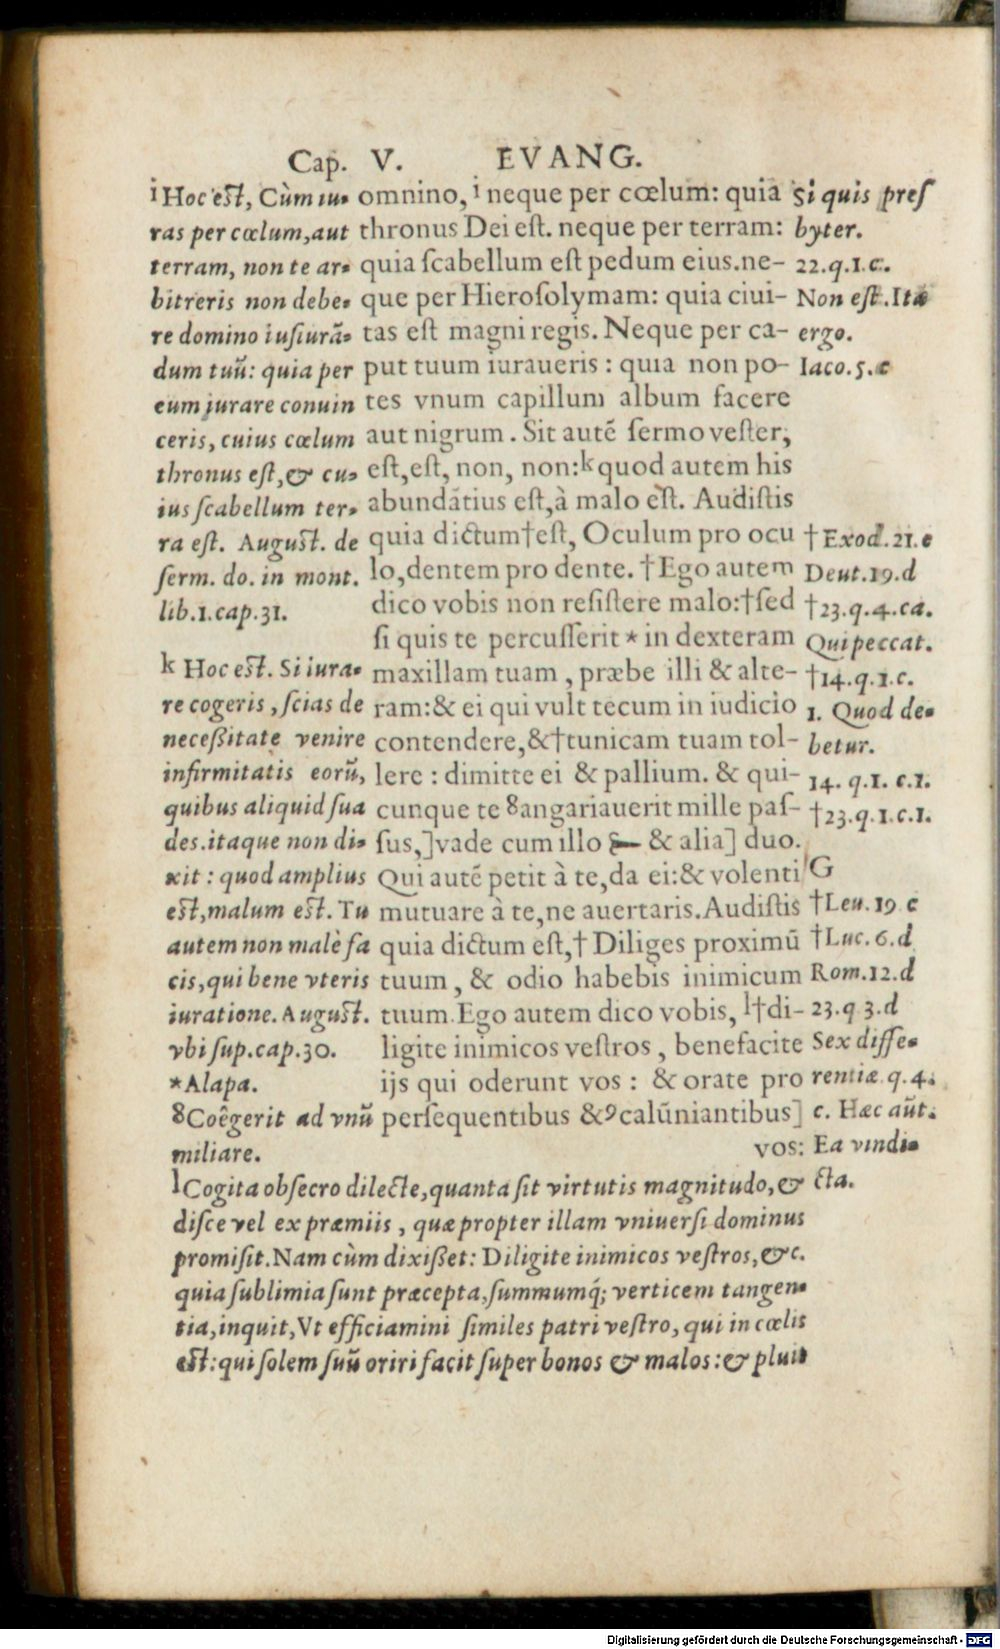 Cap. V. EVANG.
ⁱ Hoc est, Cùm iu-
ras per cœlum, aut
terram, non te ar-
bitreris non debe-
re domino iusiurā-
dum tuū: quia per
eum jurare conuin
ceris, cuius cœlum
thronus est, & cu-
ius scabellum ter-
ra est. August. de
serm. do. in mont.
lib.1.cap.31.
ᵏ Hoc est. Si iura-
re cogeris, scias de
necessitate venire
infirmitatis eorū,
quibus aliquid sua
des. itaque non di-
xit: quod amplius
est, malum est. Tu
autem non malè fa
cis, qui bene vteris
iuratione. August.
vbi sup. cap.30.
*Alapa.
8Coêgerit ad vnū
miliare.
omnino, ⁱ neque per cœlum: quia
thronus Dei est. neque per terram:
quia scabellum est pedum eius. ne-
que per Hierosolymam: quia ciui-
tas est magni regis. Neque per ca-
put tuum iuraueris: quia non po-
tes vnum capillum album facere
aut nigrum. Sit autē sermo vester,
est, est, non, non: ᵏ quod autem his
abundātius est, à malo est. Audistis
quia dictum † est, Oculum pro ocu
lo, dentem pro dente. † Ego autem
dico vobis non resistere malo: † sed
si quis te percusserit * in dexteram
maxillam tuam, præbe illi & alte-
ram: & ei qui vult tecum in iudicio
contendere, & † tunicam tuam tol-
lere: dimitte ei & pallium. & qui-
cunque te 8angariauerit mille pas-
sus,] vade cum illo & alia] duo.
Qui autē petit à te, da ei: & volenti
mutuare à te, ne auertaris. Audistis
quia dictum est, † Diliges proximū
tuum, & odio habebis inimicum
tuum. Ego autem dico vobis, ˡ†di-
ligite inimicos vestros, benefacite
ijs qui oderunt vos: & orate pro
persequentibus & 9calūniantibus]
vos:
Si quis pres
byter.
22.q.1.c.
Non est. Ita
ergo.
Iaco.5.c
† Exod.21.e
Deut.19.d
†23.q.4.ca.
Qui peccat.
†14.q.1.c.
1. Quod de-
betur.
14. q.1. c.1.
†23.q.1.c.1.
G
†Leu.19 c
†Luc.6.d
Rom.12.d
23.q 3.d
Sex diffe-
rentiæ.q.4.
c. Hæc aūt.
Ea vindi-
cta.
ˡCogita obsecro dilecte, quanta sit virtutis magnitudo, &
disce vel ex præmiis, quæ propter illam vniuersi dominus
promisit. Nam cùm dixisset: Diligite inimicos vestros, &c.
quia sublimia sunt præcepta, summumq́; verticem tangen-
tia, inquit, Vt efficiamini similes patri vestro, qui in cœlis
est: qui solem suū oriri facit super bonos & malos: & pluit
Digitalisierung gefördert durch die Deutsche Forschungsgemeinschaft - DFG